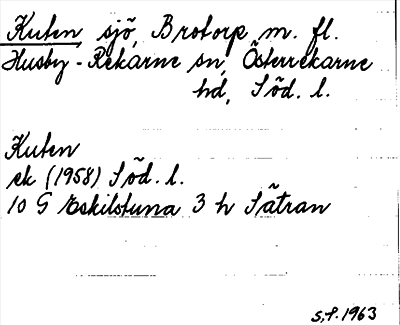 Kuten, sjö, Brotorp m. fl.
Husby-Rekarne sn, Österrekarne
hd, Söd. l.
Kuten
ek (1958) Söd. l.
10 G Eskilstuna 3 h Sätran
S.f. 1963